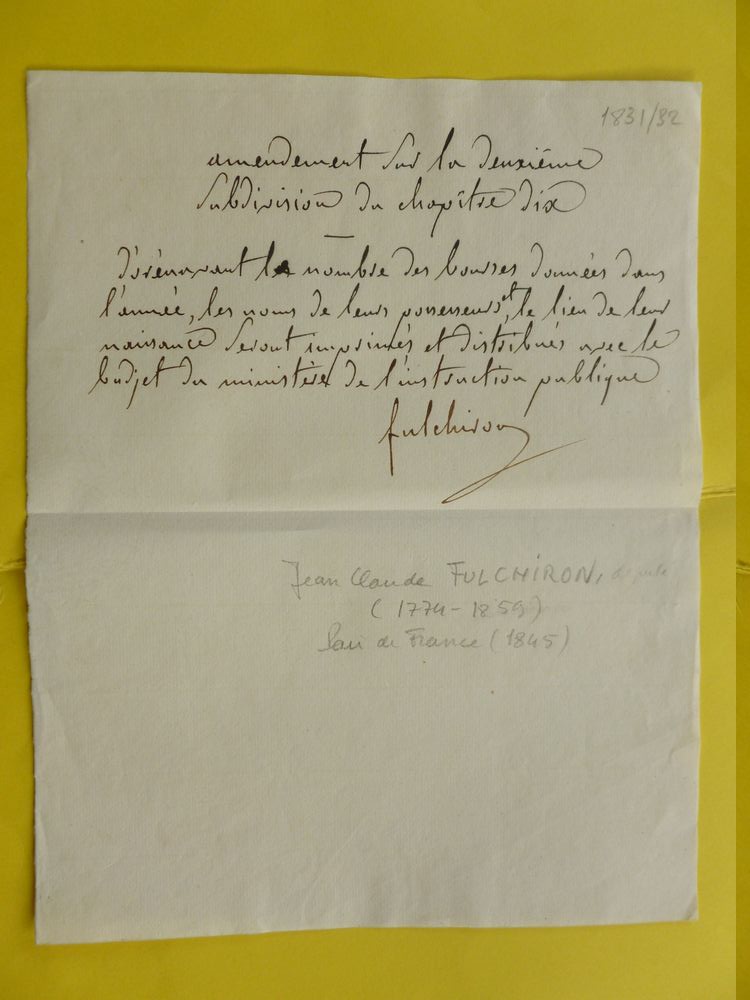 1831/32
amendement sur la deuxième
subdivision du chapître dix
d'orénavant le nombre des bourses données dans
l'année, les noms de leurs possesseurs, et le lieu de leur
naissance seront imprimés et distribués avec le
budjet du ministère de l'instruction publique
fulchiron
Jean Claude FULCHIRON, député
(1774-1859)
Pair de France (1845)